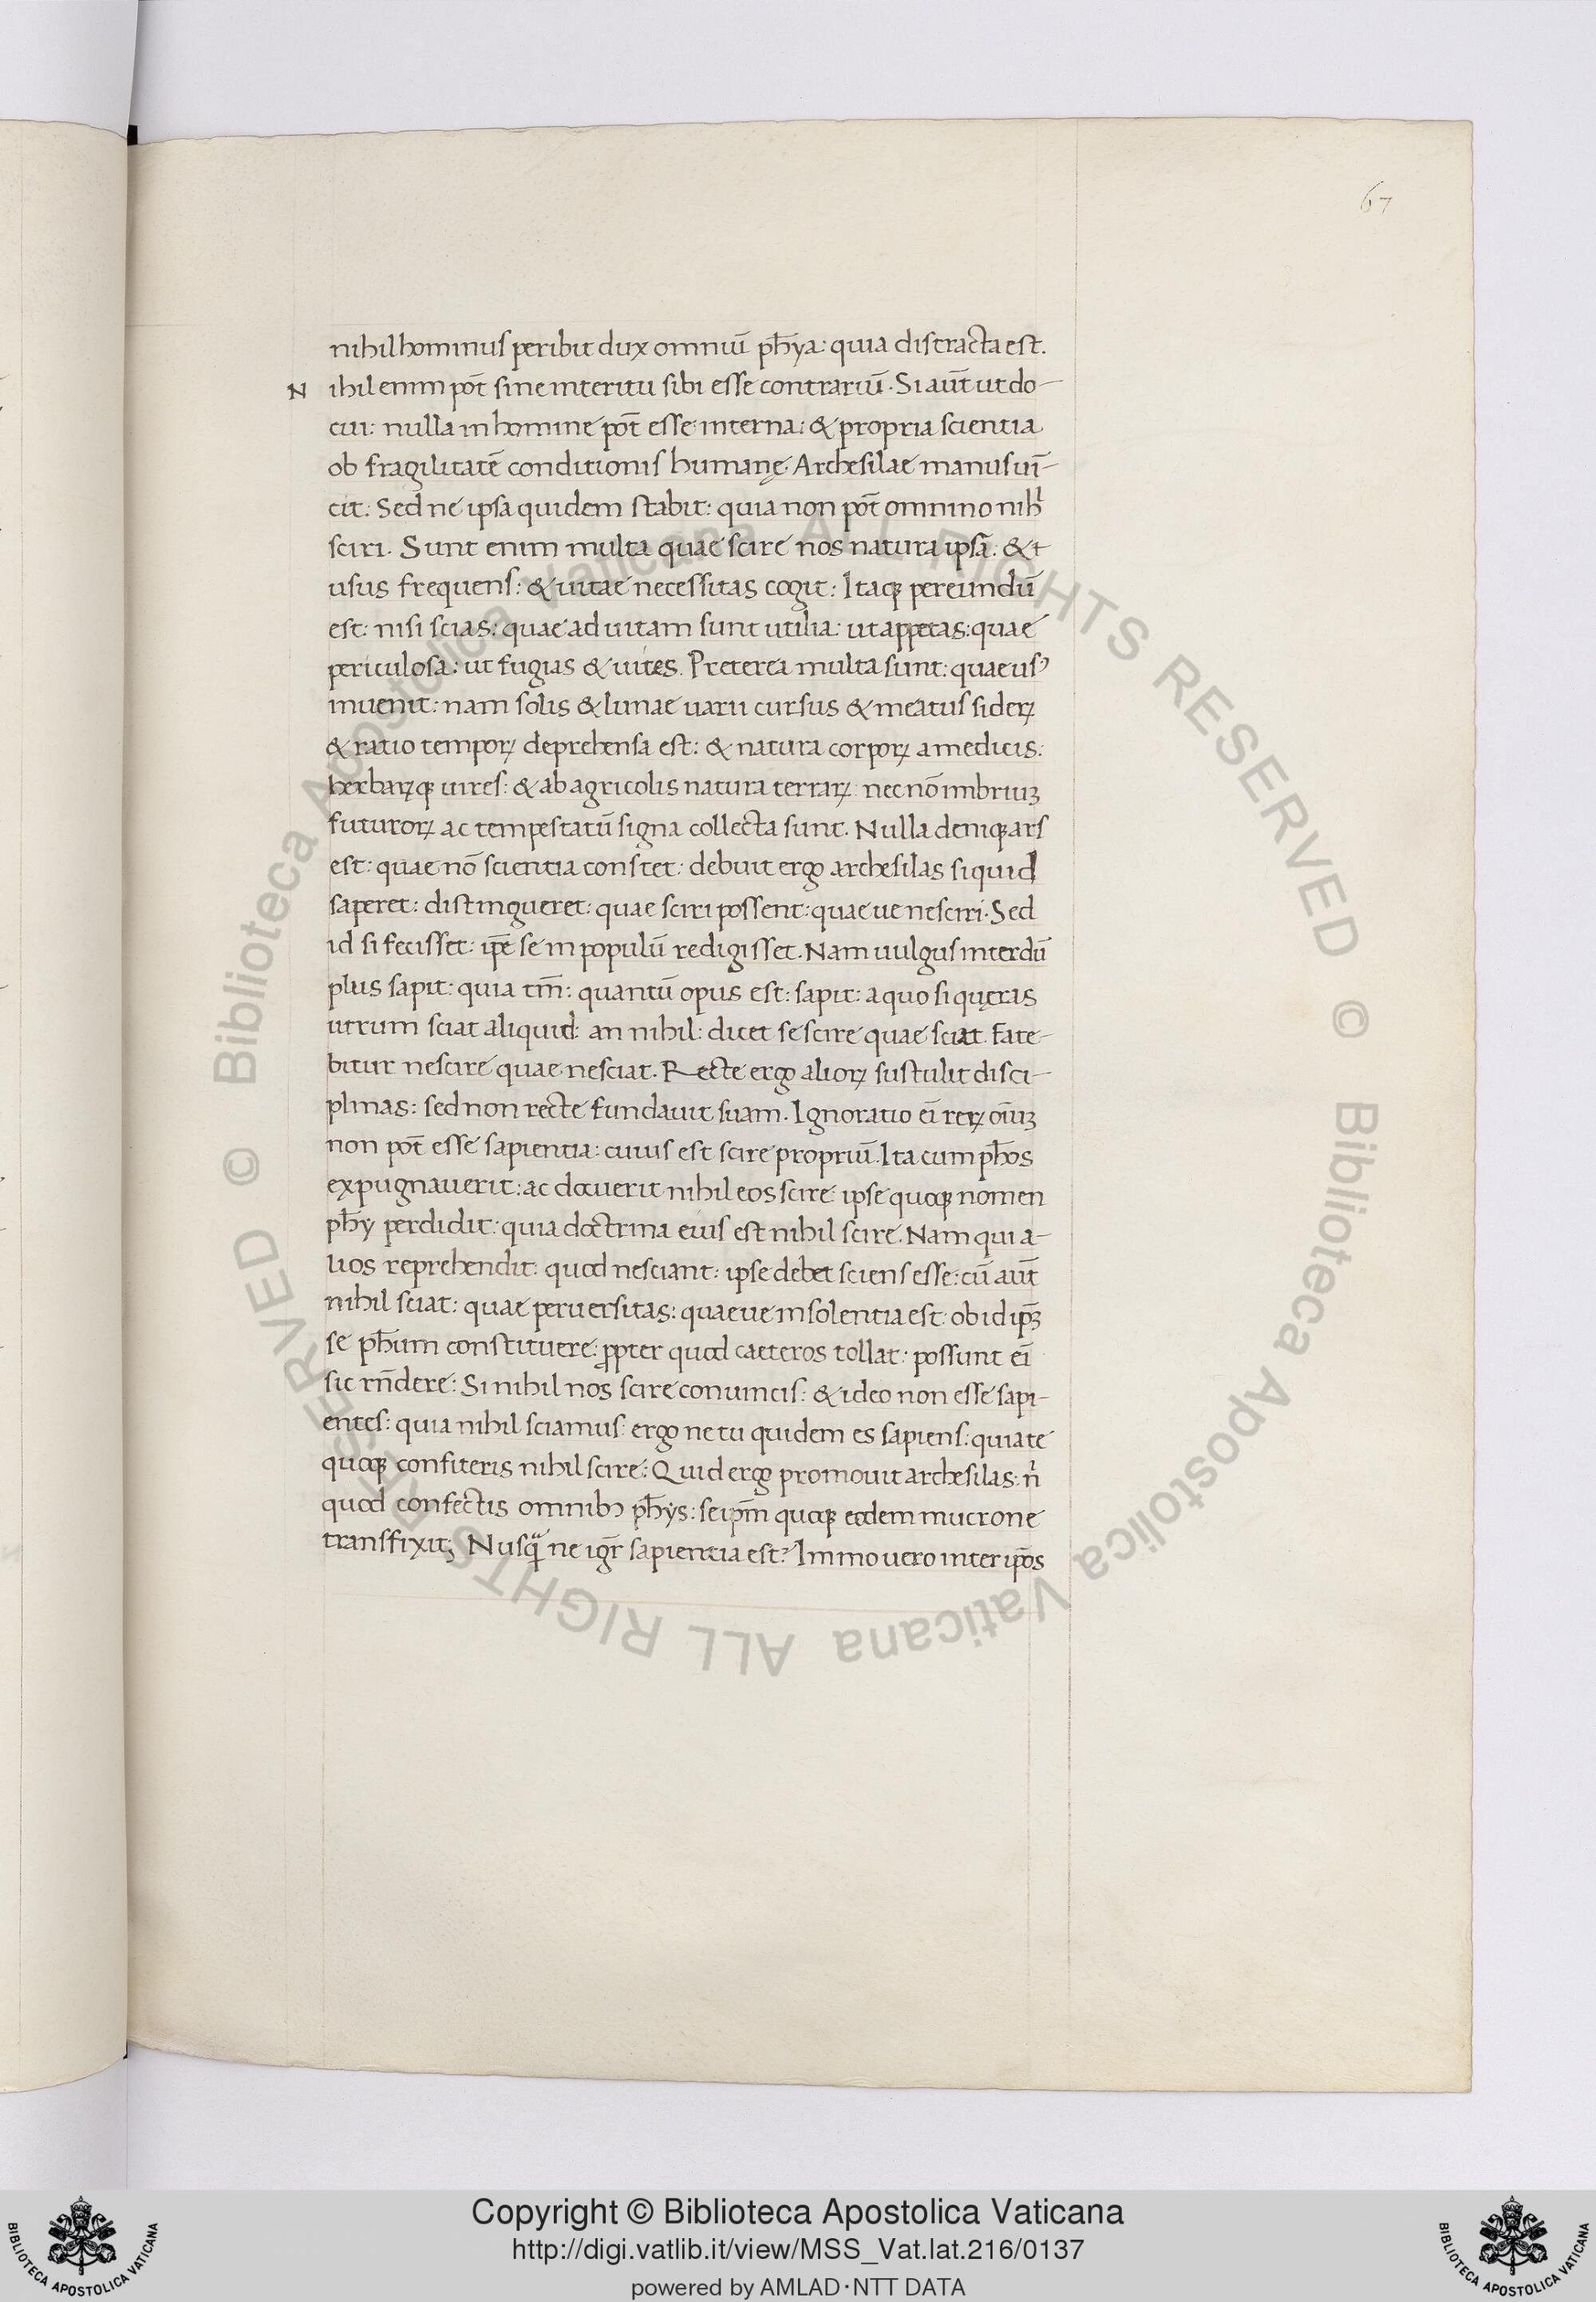 67
nihilhominus peribit dux omniū ph̄ya: quia distracta est.
Nihil enim pot̄ sine interitu sibi esse contrariū. Si aut̄ ut do-
cui: nulla in homine pot̄ esse interna: & propria scientia
ob fragilitatē conditionis humanę Archesilae manus uī-
cit: Sed ne ipsa quidem stabit: quia non pot̄ omnino nih̍
sciri. Sunt enim multa quae scire nos natura ipsā: & t
usus frequens: & uitae necessitas cogit: Itaqꝫ pereundū
est: nisi scias: quae ad uitam sunt utilia: ut appetas: quae
periculosa: ut fugias & uites. Preterea multa sunt: quae usꝰ
inuenit: nam solis & lunae uarii cursus & meatus siderꝝ
& ratio temporꝝ deprehensa est: & natura corporꝝ a medicis:
herbarꝝqꝫ uires: & ab agricolis natura terrarꝝ: nec nō imbriuꝫ
futurorꝝ ac tempestatū signa collecta sunt. Nulla deniqꝫ ars
est: quae nō scientia constet: debuit ergo archesilas si quid
saperet: distingueret: quae sciri possent: quae ue nesciri. Sed
id si fecisset: ip̄e se in populū redigisset. Nam uulgus interdū
plus sapit: quia tm̄: quantū opus est: sapit: a quo si quęras
utrum sciat aliquid: an nihil: dicet se scire quae sciat. Fate-
bitur nescire quae nesciat. Recte ergo aliorꝝ sustulit disci-
plinas: sed non recte fundauit suam. Ignoratio ei̅ rerꝝ oi̅uꝫ
non pot̄ esse sapientia: cuius est scire propriū. Ita cum ph̄os
expugnauerit: ac docuerit nihil eos scire: ipse quoqꝫ nomen
ph̄y perdidit: quia doctrina eius est nihil scire. Nam qui a-
lios reprehendit: quod nesciant: ipse debet sciens esse: cū aut̄
nihil sciat: quae peruersitas: quaeue insolentia est: ob id ip̄ꝫ
se ph̄um constituere: ꝓpter quod caeteros tollat: possunt ei̅
sic rn̄dere: Si nihil nos scire conuincis: & ideo non esse sapi-
entes: quia nihil sciamus: ergo ne tu quidem es sapiens: quia te
quoqꝫ confiteris nihil scire: Quid ergo promouit archesilas: n̍
quod confectis omnibꝰ ph̄ys: seip̄m quoqꝫ eodem mucrone
transfixit; Nusq̃ ne igr̄ sapientia est? Immo uero inter ip̄os
Copyright © Biblioteca Apostolica Vaticana
http://digi.vatlib.it/view/MSS_Vat.lat.216/0137
powered by AMLAD·NTT DATA
BIBLIOTECA APOSTOLICA VATICANA
BIBLIOTECA APOSTOLICA VATICANA
© Biblioteca Apostolica Vaticana ALL RIGHTS RESERVED
© Biblioteca Apostolica Vaticana ALL RIGHTS RESERVED